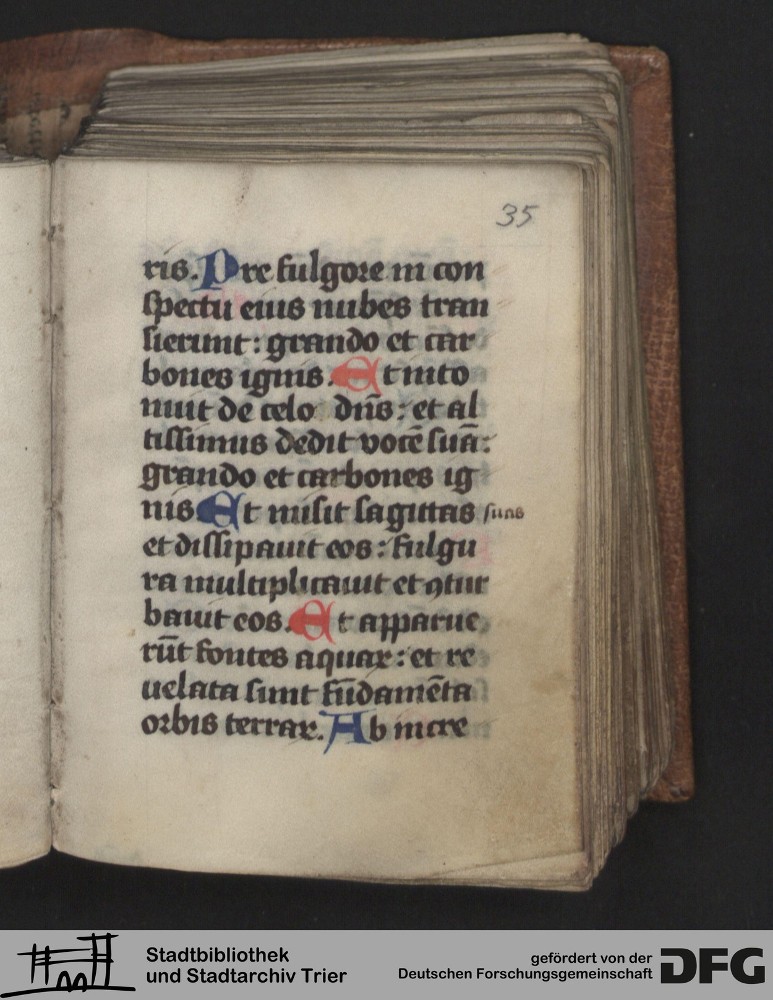 35
ris. Pre fulgore in con
spectu eius nubes tran
sierunt: grando et car
bones ignis. Et into
nuit de celo dn̄s: et al
tissimus dedit vocē suā:
grando et carbones ig
nis Et misit sagittas suas
et dissipauit eos: fulgu
ra multiplicauit et ꝯtur
bauit eos. Et apparue
rūt fontes aquaꝝ: et re
uelata sunt fūdamēta
orbis terraꝝ. Ab incre
Stadtbibliothek
und Stadtarchiv Trier
gefördert von der
Deutschen Forschungsgemeinschaft
DFG